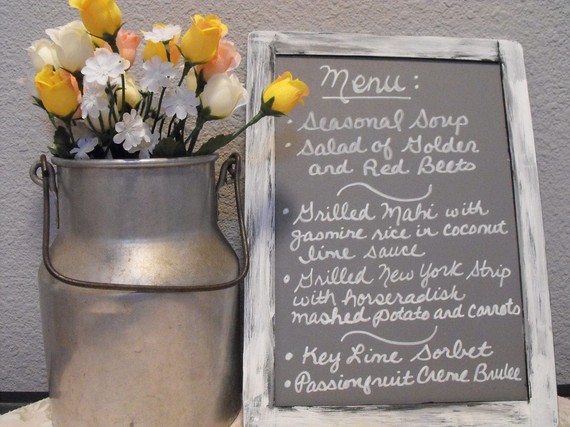 Menu:
• Seasonal Soup
• Salad of Golden
and Red Beets
• Grilled Mahi with
jasmine rice in coconut
lime sauce
• Grilled New York Strip
with horseradish
mashed potato and carrots
• Key Lime Sorbet
• Passionfruit Creme Brulee